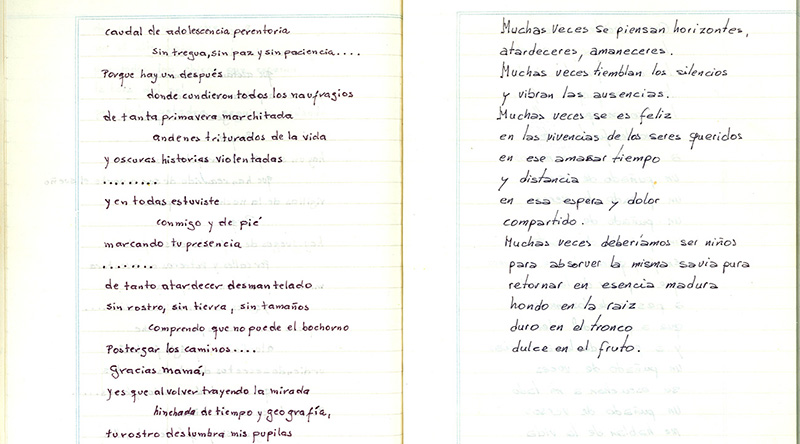 caudal de adolescencia perentoria
sin tregua, sin paz y sin paciencia....
Porque hay un después
donde cundieron todos los naufragios
de tanta primavera marchitada
andenes triturados de la vida
y oscuras historias violentadas
.........
y en todas estuviste
conmigo y de pié
marcando tu presencia
........
de tanto atardecer desmantelado
sin rostro, sin tierra, sin tamaños
comprendo que no puede el bochorno
Postergar los caminos....
Gracias mamá,
y es que al volver trayendo la mirada
hinchada de tiempo y geografía,
tu rostro deslumbra mis pupilas
Muchas veces se piensan horizontes,
atardeceres, amaneceres.
Muchas veces tiemblan los silencios
y vibran las ausencias.
Muchas veces se es feliz
en las vivencias de los seres queridos
en ese amasar tiempo
y distancia
en esa espera y dolor
compartido.
Muchas veces deberíamos ser niños
para absorver la misma savia pura
retornar en esencia madura
hondo en la raiz
duro en el tronco
dulce en el fruto.